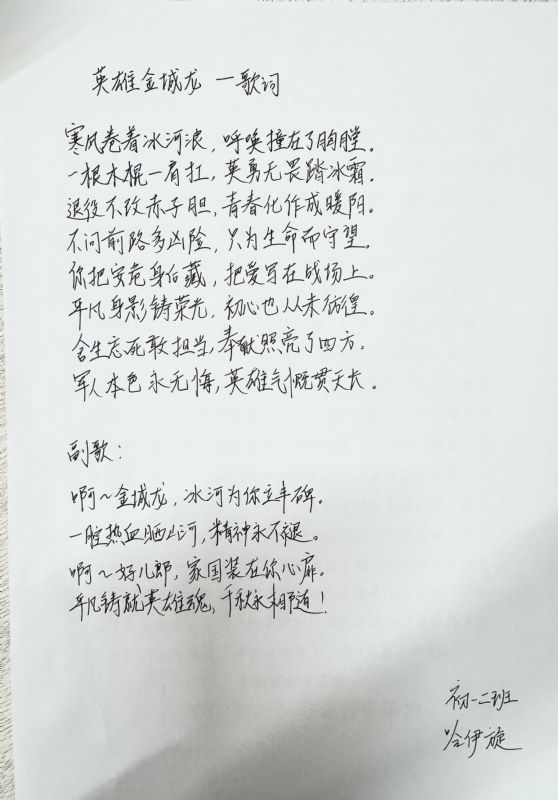 英雄金城龙 一歌词
寒风卷着冰河浪，呼唤撞在了胸膛。
一根木棍一肩扛，英勇无畏踏冰霜。
退役不改赤子胆，青春化作成暖阳。
不问前路多凶险，只为生命而守望。
你把安危身后藏，把爱写在战场上。
平凡身影铸荣光，初心也从未彷徨。
舍生忘死敢担当，奉献照亮了四方。
军人本色永无悔，英雄气慨贯天长。
副歌：
啊～金城龙，冰河为你立丰碑。
一腔热血晒山河，精神永不褪。
啊～好儿郎，家国装在你心扉。
平凡铸就英雄魂，千秋永相随！
初一二班
哈伊旋